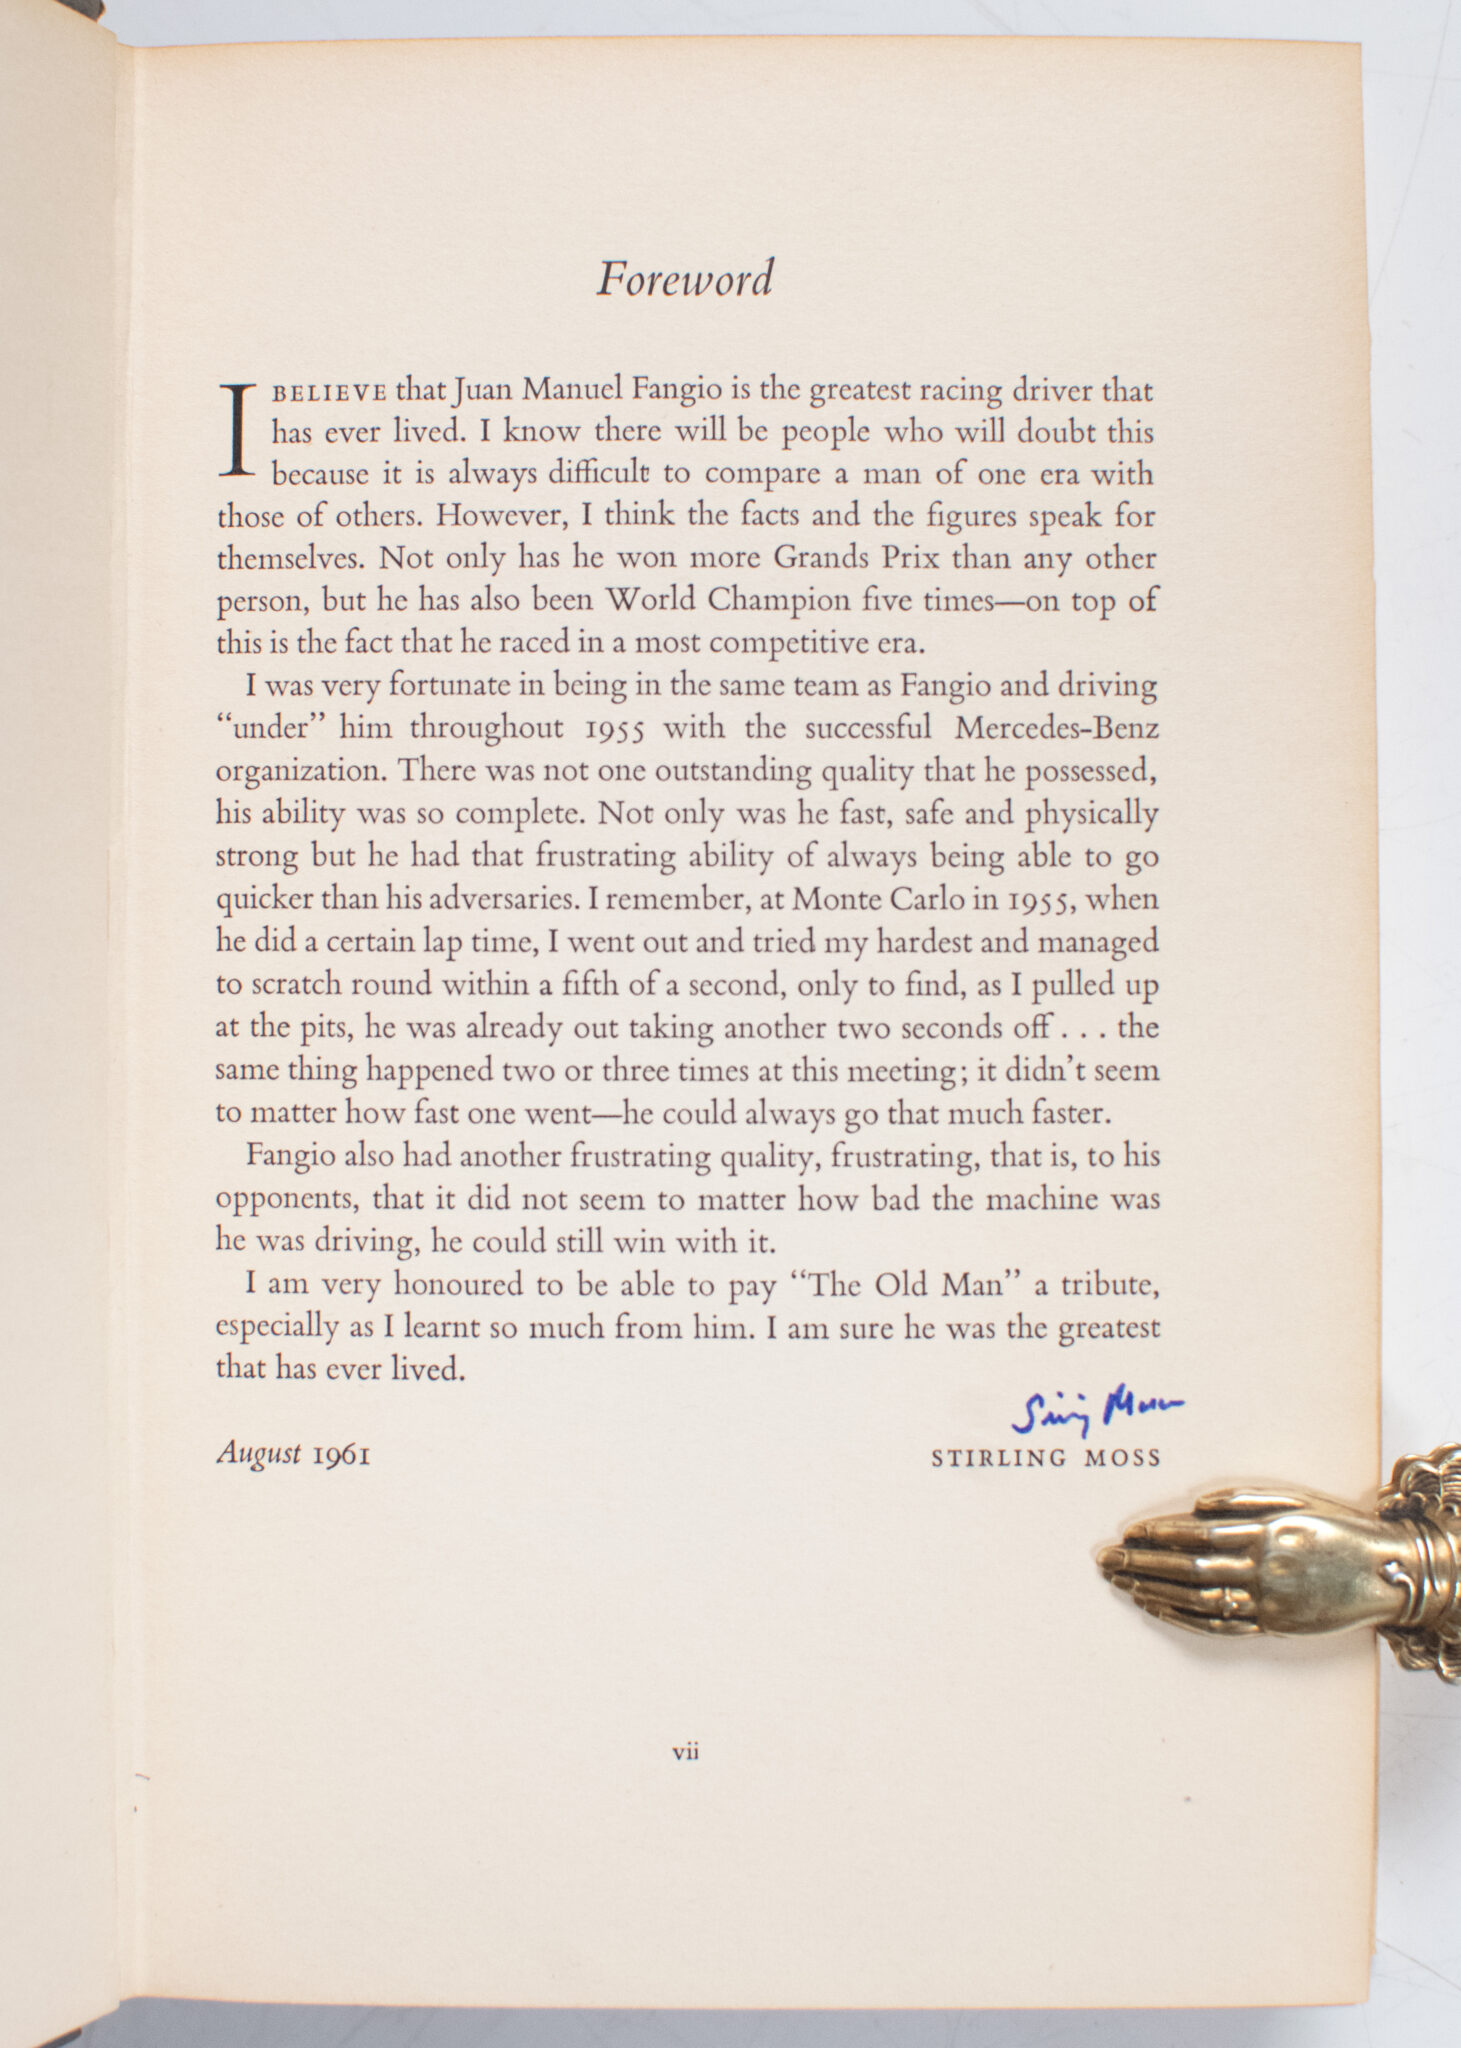 Foreword
I BELIEVE that Juan Manuel Fangio is the greatest racing driver that
has ever lived. I know there will be people who will doubt this
because it is always difficult to compare a man of one era with
those of others. However, I think the facts and the figures speak for
themselves. Not only has he won more Grands Prix than any other
person, but he has also been World Champion five times—on top of
this is the fact that he raced in a most competitive era.
I was very fortunate in being in the same team as Fangio and driving
“under” him throughout 1955 with the successful Mercedes-Benz
organization. There was not one outstanding quality that he possessed,
his ability was so complete. Not only was he fast, safe and physically
strong but he had that frustrating ability of always being able to go
quicker than his adversaries. I remember, at Monte Carlo in 1955, when
he did a certain lap time, I went out and tried my hardest and managed
to scratch round within a fifth of a second, only to find, as I pulled up
at the pits, he was already out taking another two seconds off . . . the
same thing happened two or three times at this meeting; it didn’t seem
to matter how fast one went—he could always go that much faster.
Fangio also had another frustrating quality, frustrating, that is, to his
opponents, that it did not seem to matter how bad the machine was
he was driving, he could still win with it.
I am very honoured to be able to pay “The Old Man” a tribute,
especially as I learnt so much from him. I am sure he was the greatest
that has ever lived.
Stirling Moss
August 1961 STIRLING MOSS
vii